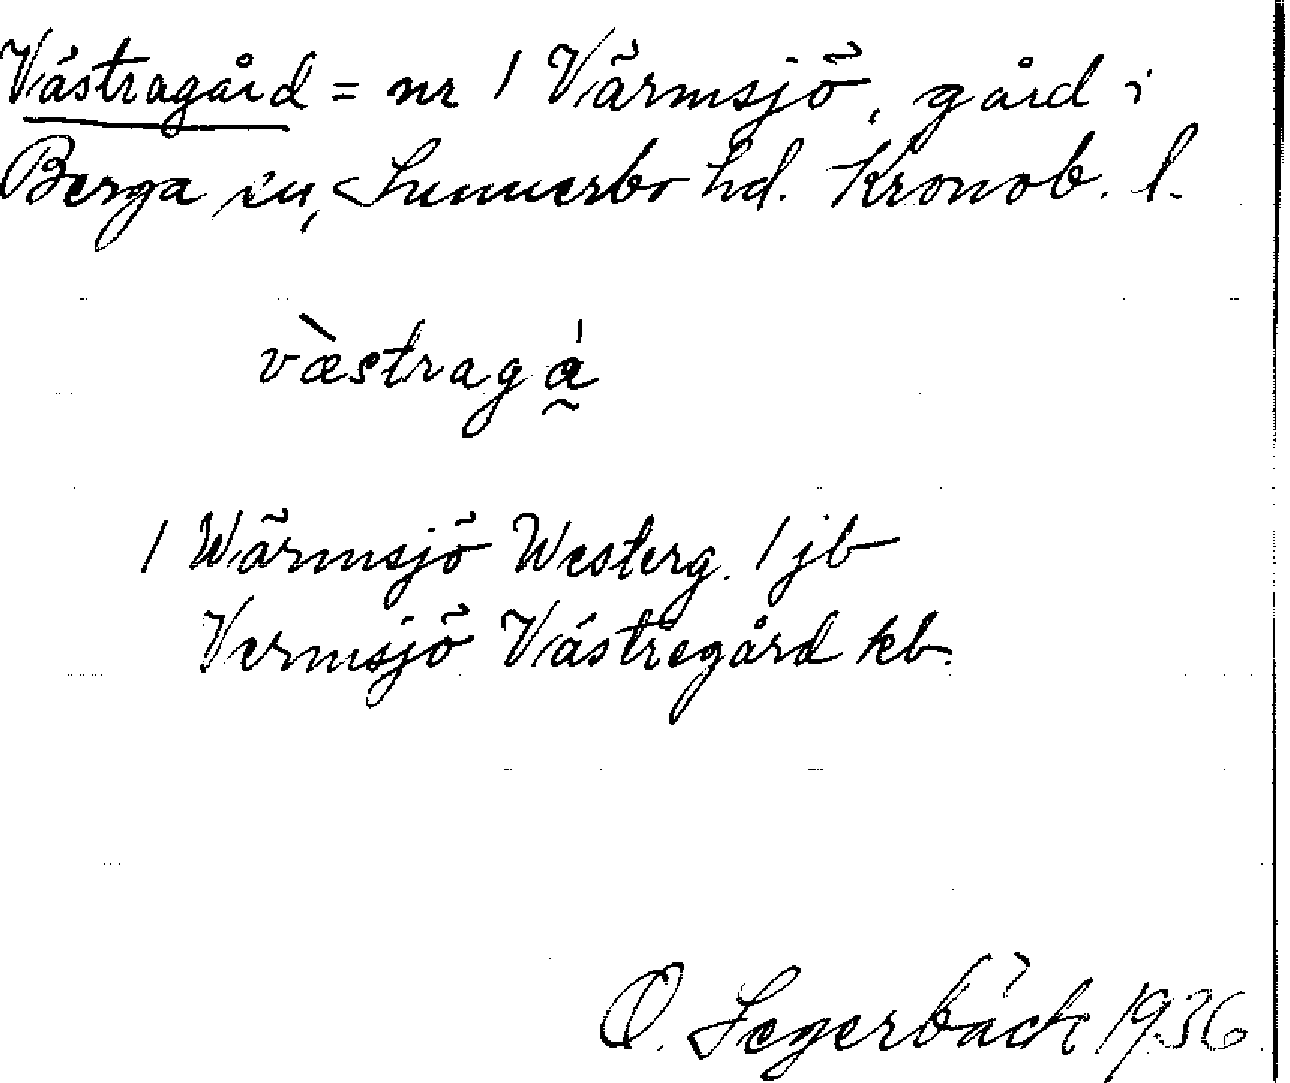 Västragård = nr 1 Värmsjö, gård i
Berga sn, Sunnerbo hd. Kronob. l.
vàstragá̰
1 Wärmsjö Westerg. 1 jb
Vermsjö Västregård kb.
O. Segerbäck 1936